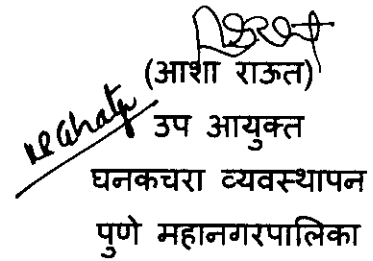 (आशा राऊत)
उप आयुक्त
घनकचरा व्यवस्थापन
पुणे महानगरपालिका